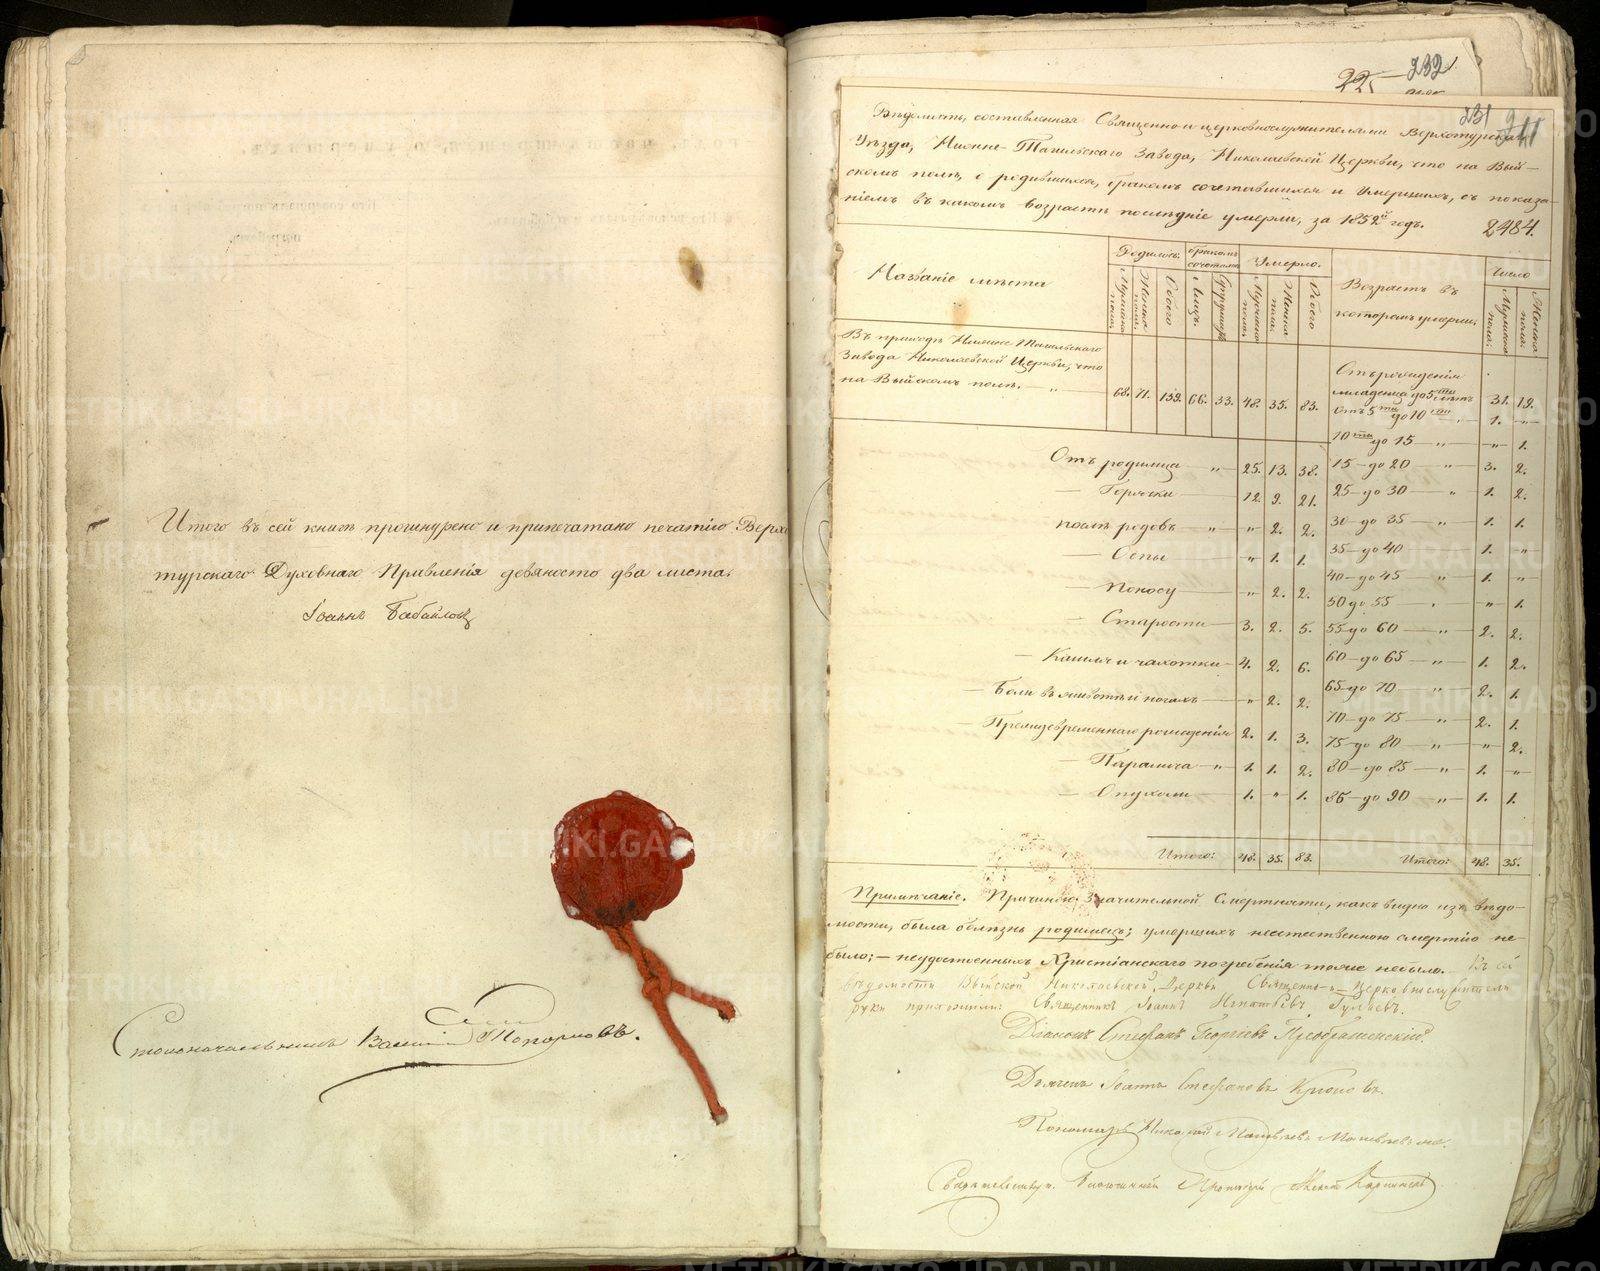 Итого въ сей книгѣ прошнурено и припечатано печатію Верхо
турскаго Духовнаго Правленія девяносто два листа.
Іоаннъ Бабайловъ
Столоначальникъ Топорковъ.
225 232
231
Вѣдомость, составленная Священно и церковнослужителями Верхотурскаго
Уѣзда, Нижне-Тагильскаго Завода, Николаевской Церкви, что на Вый-
скомъ полѣ, о родившихся, бракомъ сочетавшихся и умершихъ, съ показа-
ніемъ въ какомъ возрастѣ послѣдніе умерли, за 1852й годъ. 2484.
Названіе мѣста
Родилось. Бракомъ сочеталось Умерло.
Мужеска пола. Женска пола. Обоего Лицъ. Мужеска пола. Женска пола. Обоего
Возрастъ въ которомъ умерли
Число
Мужеска пола. Женска пола.
Въ приходѣ Нижне Тагильскаго
Завода Николаевской Церкви, что
на Выйскомъ полѣ. — " — 68. 71. 139. 66. 33. 48. 35. 83.
Отъ рожденія
младенца до 5ти лѣтъ 31. 19.
Отъ 5ти до 10ти " 1. "
10ти до 15 — " — " 1.
Отъ родимца — " — 25. 13. 38. 15 — до 20 — " — 3. 2.
— Горячки — 12. 9. 21. 25 — до 30 — " — 1. 2.
послѣ родовъ " " 2. 2. 30 — до 35 — " — 1. 1.
— Оспы — " 1. 1. 35 — до 40 — 1. "
— Поносу — " 2. 2. 40 — до 45 — " — 1. "
50 до 55 — " 1.
— Старости — 3. 2. 5. 55 до 60 — " — 2. 2.
— Кашля и чахотки — 4. 2. 6. 60 — до 65 — " — 1. 2.
— Боли въ животѣ и ногахъ — " 2. 2. 65 — до 70 — " — 2. 1.
— Преждевременнаго рожденія 2. 1. 3. 70 — до 75 — " — 2. 1.
75 — до 80 — " — " 2.
— Паралича — " — 1. 1. 2. 80 — до 85 — " — 1. "
— Опухоли — 1. " 1. 85 — до 90 — " — 1. 1.
Итого: 48. 35. 83. Итого: 48. 35.
Примѣчаніе. Причиною значительной смертности, какъ видно изъ вѣдо-
мости, была болѣзнь родимецъ; умершихъ неестественною смертію не
было; — неудостоенныхъ Христіанскаго погребенія тоже небыло. Къ сей
вѣдомости Выйской Николаевской Церкви Священно-Церковнослужители
руки приложили: Священникъ Іоаннъ Игнатьевъ Гуляевъ.
Діаконъ Стефанъ Георгіевъ Преображенскій.
Дьячекъ Іоаннъ Стефановъ
Пономарь Николай
Свидѣтельствовалъ Благочинный Протоіерей
METRIKI.GASO-URAL.RU